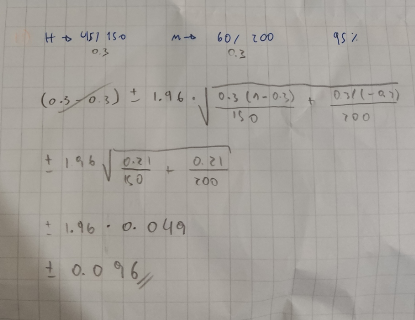 H → 45/150 M → 60/200 95%
0.3 0.3
(0.3 - 0.3) ± 1.96 · √(0.3(1-0.3)/150 + 0.3(1-0.3)/200)
± 1.96 √(0.21/150 + 0.21/200)
± 1.96 · 0.049
± 0.096